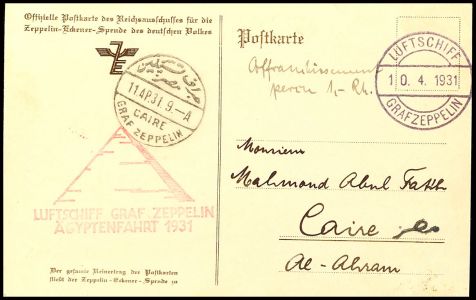 Offizielle Postkarte des Reichsausschusses für die
Zeppelin-Eckener-Spende des deutschen Volkes
Postkarte
LUFTSCHIFF
10.4.1931
GRAF ZEPPELIN
Affranchissement
1,- Rh.
جراف تسبلين
مصر
11 AP.31 9.-A
CAIRE
GRAF ZEPPELIN
Monsieur
Mahmoud Abul Fath
Caire مصر
Al-Ahram
LUFTSCHIFF GRAF ZEPPELIN
ÄGYPTENFAHRT 1931
Der gesamte Reinertrag der Postkarten
fließt der Zeppelin-Eckener-Spende zu